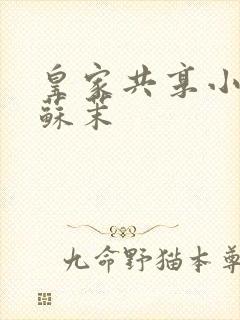 皇家共享小
蘇茉
九命野猫本尊